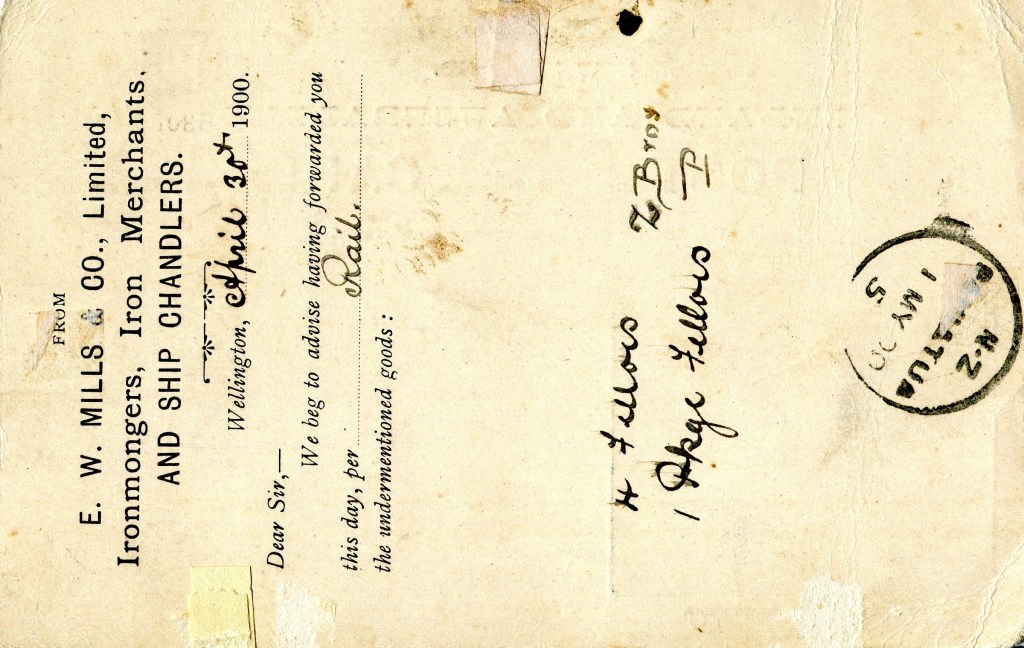 FROM
E. W. MILLS & CO., Limited,
Ironmongers, Iron Merchants,
AND SHIP CHANDLERS.
Wellington, April 30th 1900.
Dear Sir,—
We beg to advise having forwarded you
this day, per Rail.
the undermentioned goods:
Bros
P
4 Fellois
1 Pkge Fellois
1 MY
N.Z